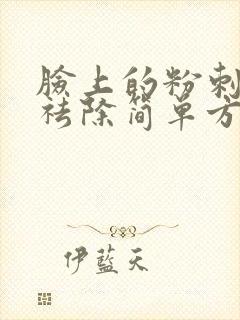 脸上的粉刺
祛除简单方
伊蓝天